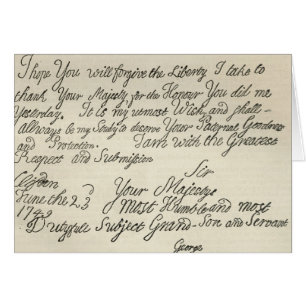 I hope You will forgive the Liberty I take to
thank Your Majesty for the Honour You did me
Yesterday. It is my utmost Wish, and shall
allways be my Study to deserve Your Paternal Goodness
and Protection. I am with the Greatest
Respect and Submission
Sir
June the 23 Your Majestys
Most Humble and most
Dutyfull Subject Grand-Son and Servant
George